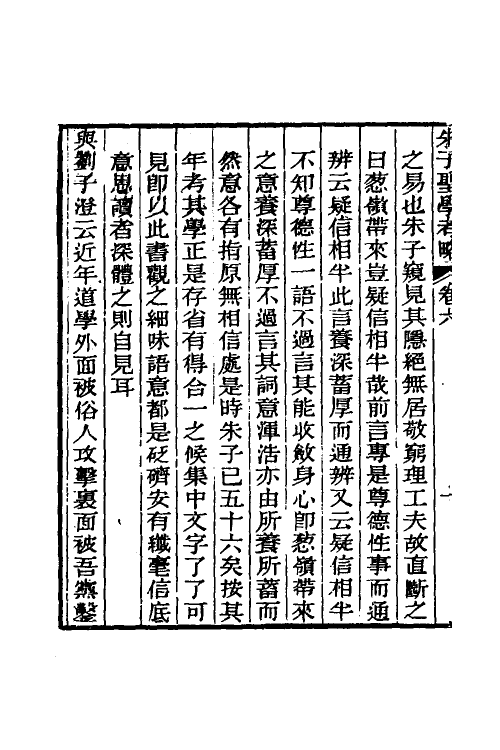 朱子聖學考略 卷六
之易也朱子窺見其隱絕無居敬窮理工夫故直斷之
曰葱嶺帶來豈疑信相半哉前言專是尊德性事而通
辨云疑信相半此言養深蓄厚而通辨又云疑信相半
不知尊德性一語不過言其能收斂身心卽葱嶺帶來
之意養深蓄厚不過言其詞意渾浩亦由所養所蓄而
然意各有指原無相信處是時朱子已五十六矣按其
年考其學正是存省有得合一之候集中文字了了可
見卽以此書觀之細味語意都是砭礪安有纖毫信底
意思讀者深體之則自見耳
與劉子澄云近年道學外面被俗人攻擊裏面被吾黨鑿